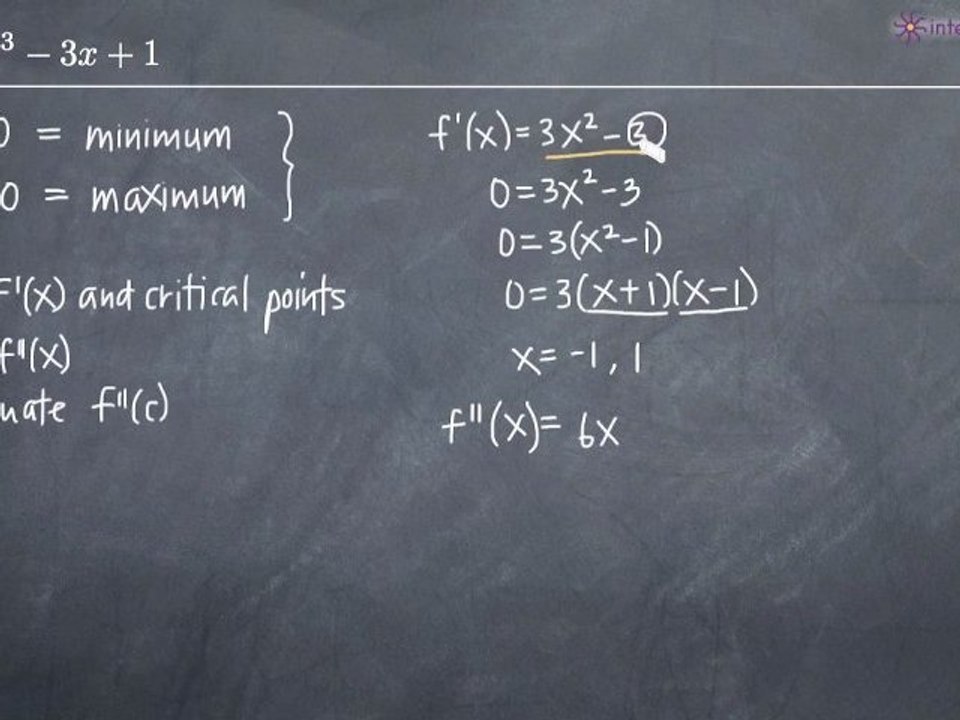 ³ − 3x + 1
inte
0 = minimum
0 = maximum
F'(x) and critical points
f''(x)
uate f''(c)
f'(x) = 3x² - 3
0 = 3x² - 3
0 = 3(x² - 1)
0 = 3(x+1)(x-1)
x = -1, 1
f''(x) = 6x